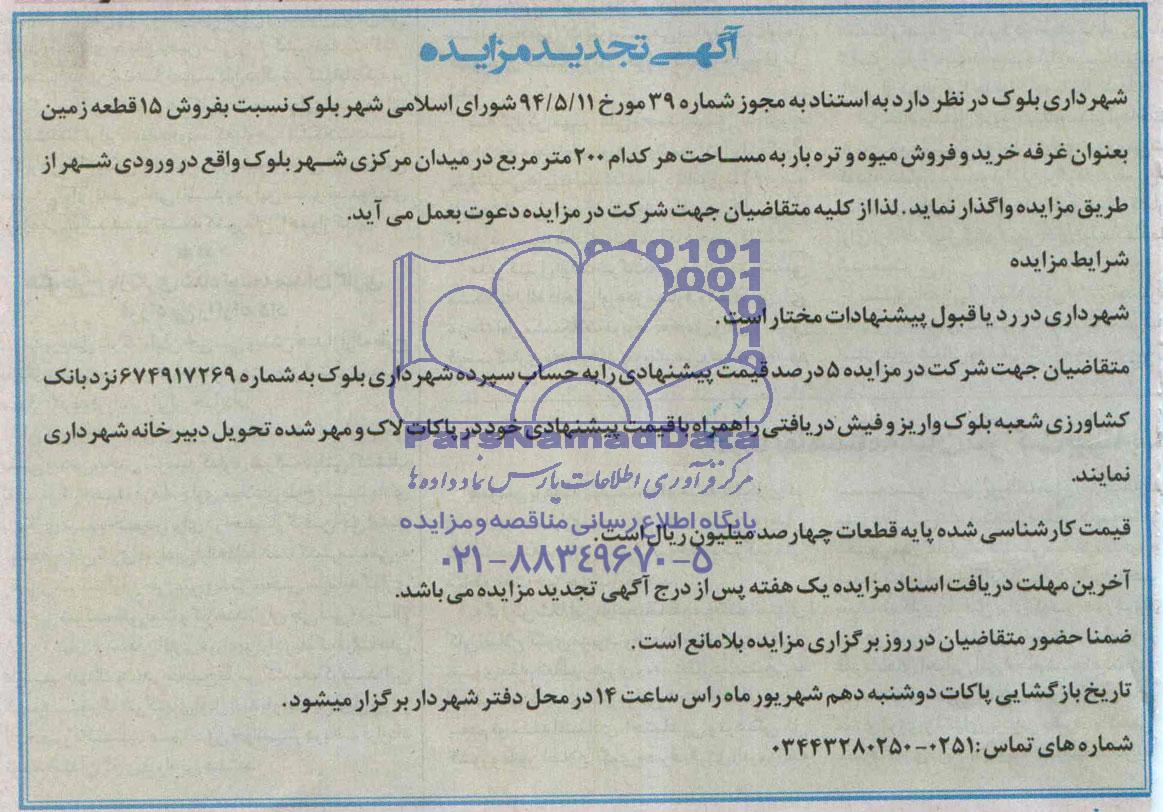 آگهی تجدید مزایده
شهرداری بلوک در نظر دارد به استناد به مجوز شماره ۳۹ مورخ ۹۴/۵/۱۱ شورای اسلامی شهر بلوک نسبت بفروش ۱۵ قطعه زمین
بعنوان غرفه خرید و فروش میوه و تره بار به مساحت هر کدام ۲۰۰ متر مربع در میدان مرکزی شهر بلوک واقع در ورودی شهر از
طریق مزایده واگذار نماید. لذا از کلیه متقاضیان جهت شرکت در مزایده دعوت بعمل می آید.
شرایط مزایده
شهرداری در رد یا قبول پیشنهادات مختار است.
متقاضیان جهت شرکت در مزایده ۵ درصد قیمت پیشنهادی را به حساب سپرده شهرداری بلوک به شماره ۶۷۴۹۱۷۲۶۹ نزد بانک
کشاورزی شعبه بلوک واریز و فیش دریافتی را همراه با قیمت پیشنهادی خود در پاکات لاک و مهر شده تحویل دبیرخانه شهرداری
نمایند.
قیمت کارشناسی شده پایه قطعات چهارصد میلیون ریال است.
آخرین مهلت دریافت اسناد مزایده یک هفته پس از درج آگهی تجدید مزایده می باشد.
ضمنا حضور متقاضیان در روز برگزاری مزایده بلامانع است.
تاریخ بازگشایی پاکات دوشنبه دهم شهریور ماه راس ساعت ۱۴ در محل دفتر شهردار برگزار میشود.
شماره های تماس: ۰۲۵۱-۰۳۴۴۳۲۸۰۲۵۰
010101
0001
10
1
0
ParsNamadData
مرکز فرآوری اطلاعات پارس نماد داده ها
پایگاه اطلاع رسانی مناقصه و مزایده
۰۲۱-۸۸۳۴۹۶۷۰-۵